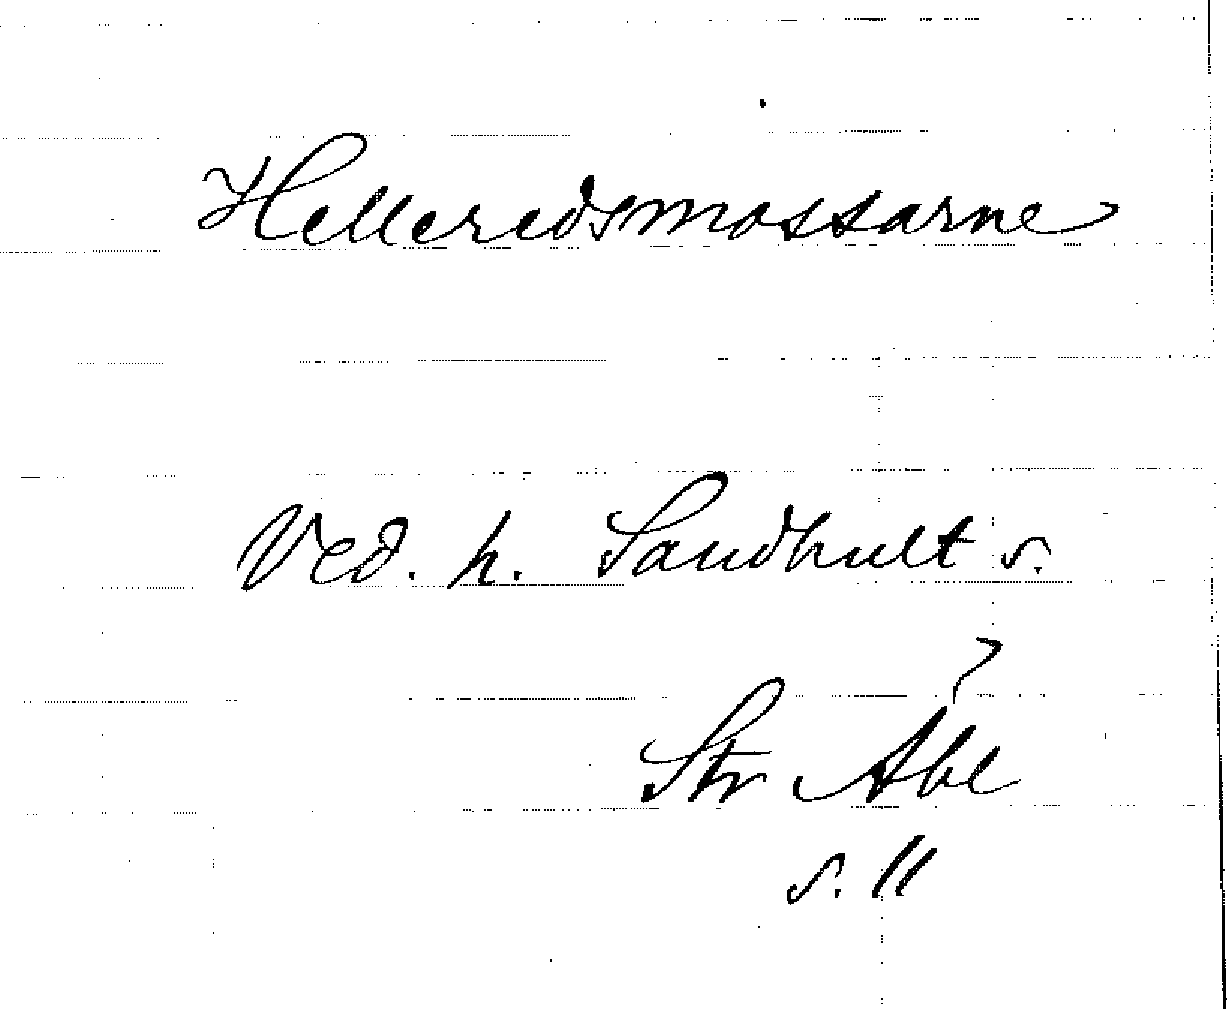 Helleredsmossarne
Ved. h. Sandhult s.
Str Åbl
s. 11